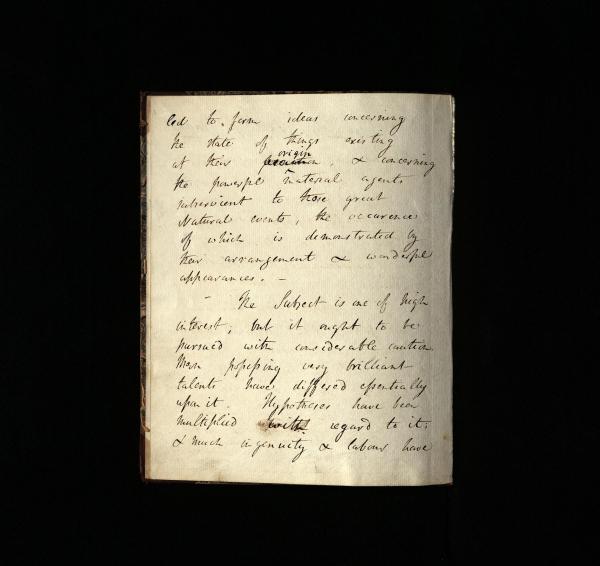 led to form ideas concerning
the state of things existing
origin
at their , & concerning
the powerful material agents
subservient to those great
Natural events, the occurence
of which is demonstrated by
their arrangement & wonderful
appearances. –
– The Subject is one of high
interest; but it ought to be
pursued with considerable caution
Men possessing very brilliant
talents have differed essentially
upon it. Hypotheses have been
multiplied with regard to it;
& much ingenuity & labour have